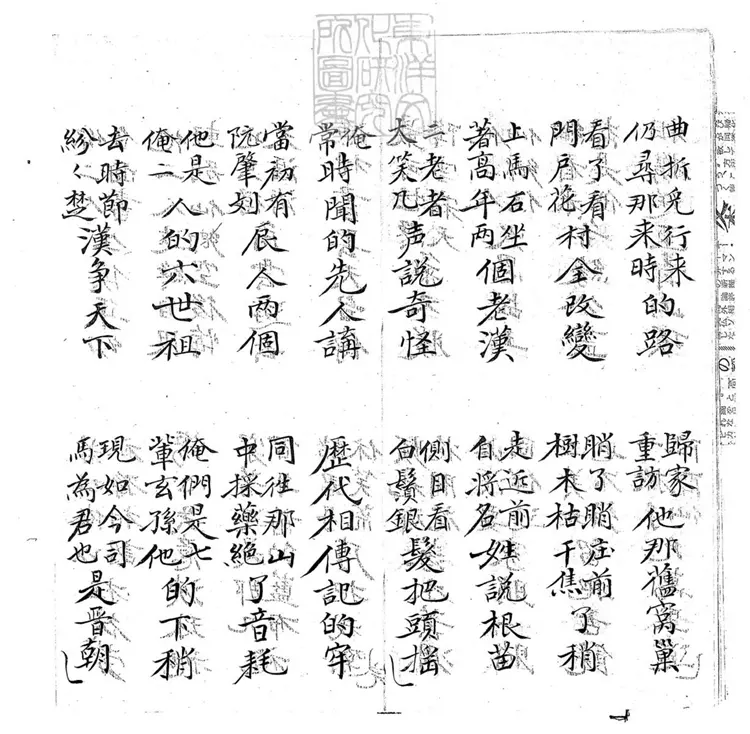 東洋文化研究所圖書
曲折兒行来
仍尋那来時的路
歸家
重訪他那舊窩巢
看了看
門戶花村全改變
瞧了瞧庄前
樹木枯干焦了稍
上馬石坐
著高年两個老漢
走近前
自將名姓說根苗
二老者
大笑几声說奇怪
側目看
白鬂銀髮把頭揺
俺
常時聞的先人講
歷代相傳記的牢
當初有
阮肇刘辰人兩個
同徃那山
中採藥絕了音耗
他是
俺二人的六世祖
俺們是七
輩玄孫他的下稍
去時節
紛〻楚漢争天下
現如今司
馬為君也是晋朝